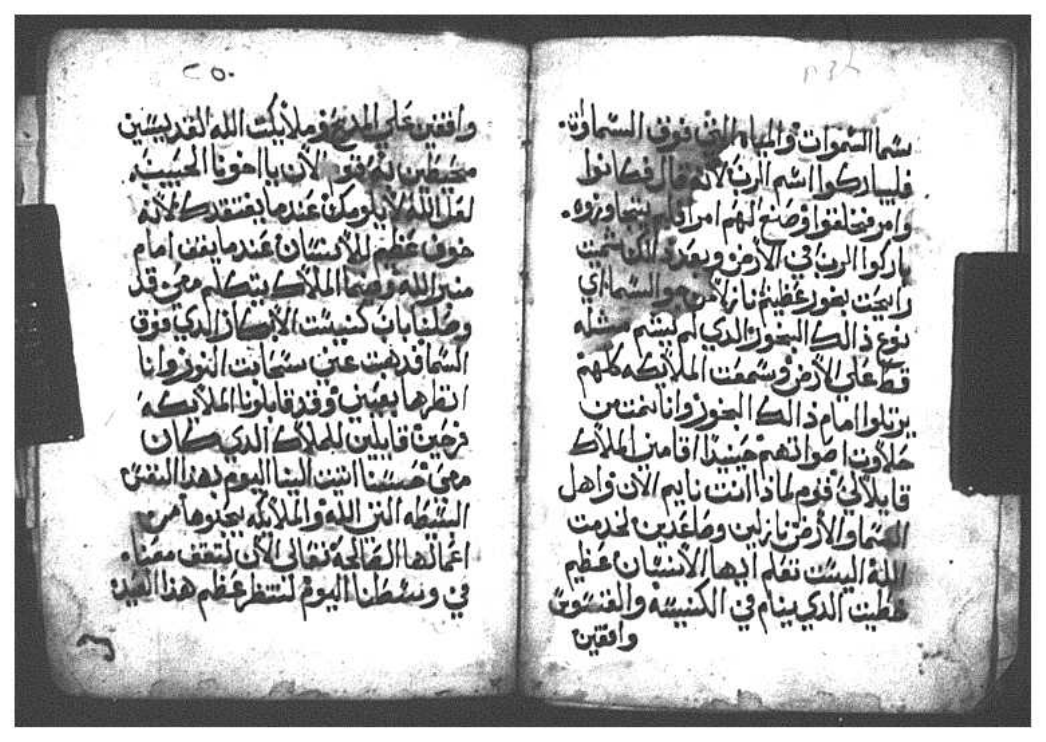 سما السموات والمياه التي فوق السماوت.
فليباركوا اسم الرب لانه قال فكانوا
وامر فتخلقوا وضع لهم امرا فلم يتجاوزوه.
باركوا الرب في الارض وبعد ذالك شميت
رايحت بخور عظيم نازلا من جو السما اي
نوع ذالك البخور الدي لم يشم مثله
قط علي الارض وسمعت الملايكه كلهم
يرتلوا امام ذالك البخور وانا نمت من
حلاوت اصواتهم حينيدا اقامني الملاك
قايلا لي قوم لماذا انت نايم الان واهل
السما والارض نازلين وصاعدين لخدمت
الله اليست تعلم ايها الانسان عظيم
خطيت الدي ينام في الكنيسه والقسوس
واقفين
٢٥٠
واقفين علي المدبح وملايكت الله القديسين
محيطين بهم الان يا اخونا الحبيب
لعل الله لا يلومك عندما يفتقدك لانه
خوف عظيم للانسان عندما يقف امام
منبر الله وفيما الملاك يتكلم معي قد
وصلنا باب كنيست الابكار الدي فوق
السما فدهبت عني سبحات النور وانا
انظرها بعيني وقد قابلونا الملايكه
فرحين قايلين للملاك الدي كان
معي حسنا اتيت الينا اليوم بهدا النفس
البسيطه التي الله والملايكه يحبوها من
اعمالها الصالحه تعالي الان لتقف معنا.
في وسطنا اليوم لتنظر عظم هذا العيد